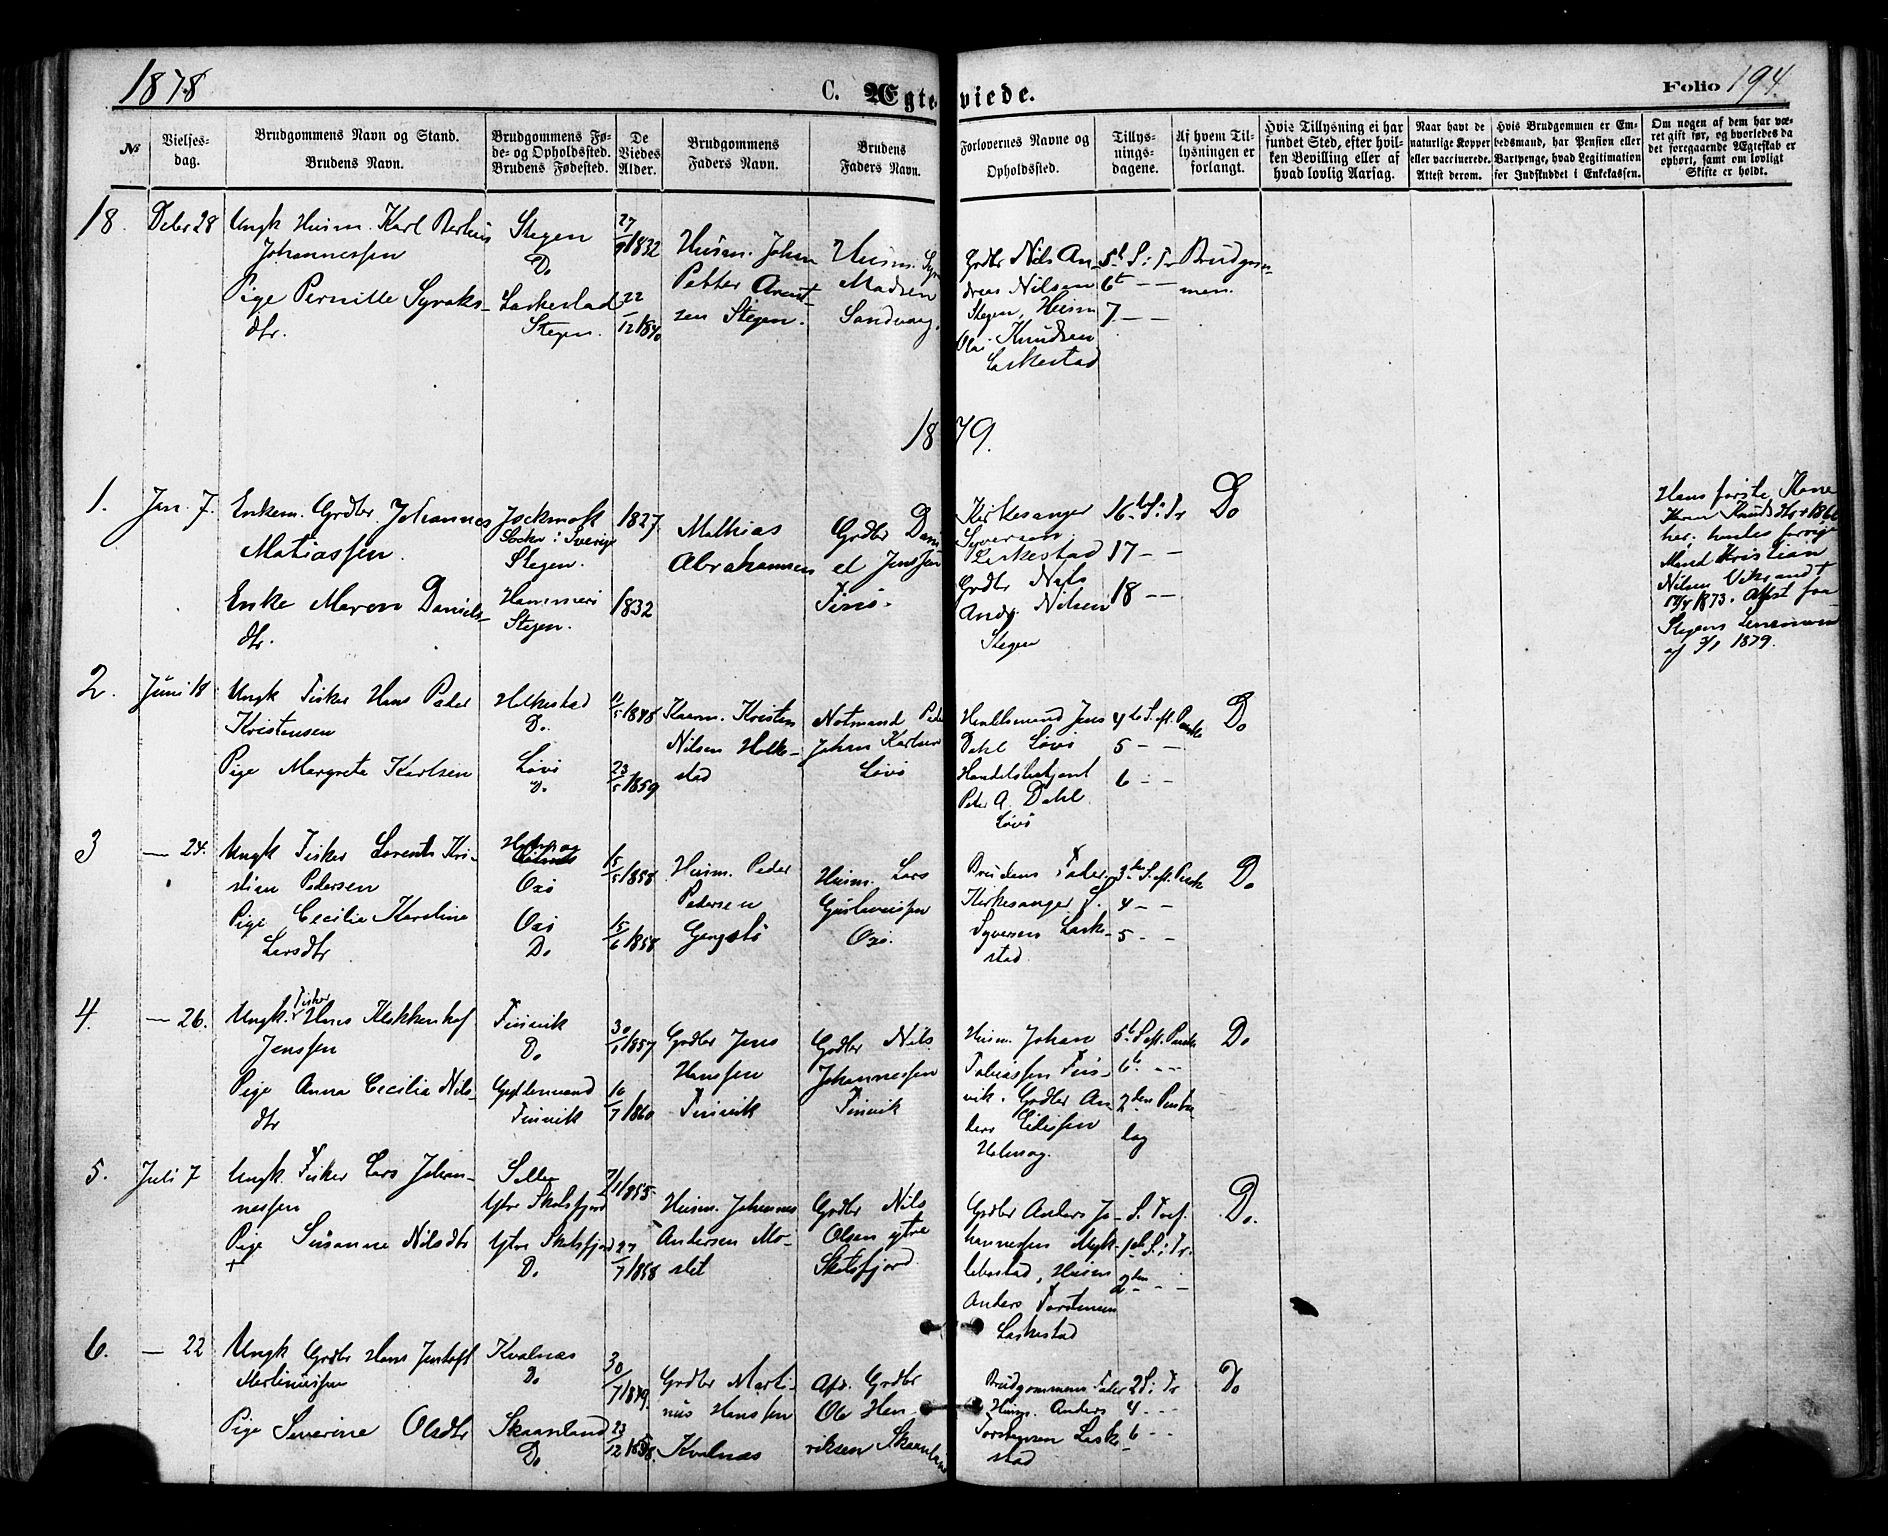 1878
C. Ægteviede.
Folio 194.
№
Vielsesdag.
Brudgommens Navn og Stand.
Brudens Navn.
Brudgommens Føde- og Opholdssted.
Brudens Fødested.
De Viedes Alder.
Brudgommens Faders Navn.
Brudens Faders Navn.
Forlovernes Navne og Opholdssted.
Tillysningsdagene.
Af hvem Tillysningen er forlangt.
Hvis Tillysning ei har fundet Sted, efter hvilken Bevilling eller af hvad lovlig Aarsag.
Naar havt de naturlige Kopper eller vaccinerede. Attest derom.
Hvis Brudgommen er Embedsmand, har Pension eller Vartpenge, hvad Legitimation for Indskuddet i Enkekassen.
Om nogen af dem har været gift før, og hvorledes da det foregaaende Ægteskab er ophørt, samt om lovligt Skifte er holdt.
18. Dcbr 28
Ungk Husm. Karl
Johannessen
Pige Pernille Syraks-
dtr.
Stegen
Do
Laskestad
Stegen.
27/9 1832
22/12 1840
Husm. Johan
Petter Arent-
sen Stegen.
Husm.
Madsen
Sandvaag.
Grdbr Nils An-
dreas Nilsen
Stegen, Husm
Olai Knudsen
Laskestad
5te S. i Tr
6te — —
7 — —
Brudgom-
men.
1879.
1. Jan. 7.
Enkem. Grdbr. Johannes
Matiassen.
Enke Maren Daniels-
dtr.
Jockmok
Sockn i Sverige
Stegen.
Hammerø
Stegen.
1827
1832
Mathias
Abrahamsen
Grdbr Dani-
el Jenssen
Finø.
Kirkesanger
Syversen
Laskestad
Grdbr Nils
Andr. Nilsen
Stegen
16de S. i Tr
17 — —
18 — —
Do
Hans første Kone
Knudsdtr
her. hendes forrige
Mand Kristian
Nilsen
1873. Attest fra
Stegens Lensmand
af 3/1 1879.
2. Juni 18
Ungk Fisker Hans Peder
Kristensen
Pige Margreta Karlsen
Helkestad
Do.
Løvø
Do
12/5 1848
23/5 1859
Kaarm. Kristen
Nilsen Helke-
stad
Notmand Peder
Johan Karlsen
Løvø
Handelsmand Jens
Dahl Løvø
Handelsbetjent
Peter A. Dahl
Løvø
4de S. eft. Paaske
5 — —
6 — —
Do
3 — 24.
Ungk Fisker Lorents Kri-
stian Pedersen
Pige Cecilia Karolina
Larsdtr
Oxø
Oxø
Do
15/5 1858
15/6 1858
Husm. Peder
Pedersen
Husm. Lars
Gustavussen
Oxø.
Brudens Fader
Kirkesanger S.
Syversen Laske-
stad
3die S. eft. Paaske
4 — —
5 — —
Do
4. — 26.
Ungk. Fisker Hans
Jenssen
Pige Anna Cecilia Nils-
dtr
Finvik
Do
Finvik
1857
16/7 1860
Grdbr Jens
Hanssen
Finvik
Grdbr Nils
Johannessen
Finvik
Husm. Johan
Tobiassen Fin-
vik. Grdbr An-
ders Eliassen
Helnessag.
5te S. eft. Paaske
6te — —
2den Pintse-
dag
Do
5. Juli 7
Ungk. Fisker Lars Johan-
nessen
Pige Susanne Nilsdtr
+
Ytre Skotsfjord
Ytre Skotsfjord
Do
1855
27/7 1858
Husm. Johannes
Andersen Mo-
slet
Grdbr Nils
Olsen ytre
Skotsfjord
Grdbr Anders Jo-
hannessen Myk-
lebostad, Husm
Anders Torstensen
Laskestad
1ste S. i Tr.
2den — —
Do.
6. — 22
Ungk Grdbr Hans Jentoft
Martinussen
Pige Severine Olsdtr
Kvalnæs
Do
Skaanland
Do
30/7 1849.
23/12 1858.
Grdbr Marti-
nus Hanssen
Kvalnæs
Afd. Grdbr
Ole Hen-
riksen Skaanland
Brudgommens Fader
Husm. Anders
Torstensen Laske-
stad
2 S. i Tr
4 — —
6 — —
Do